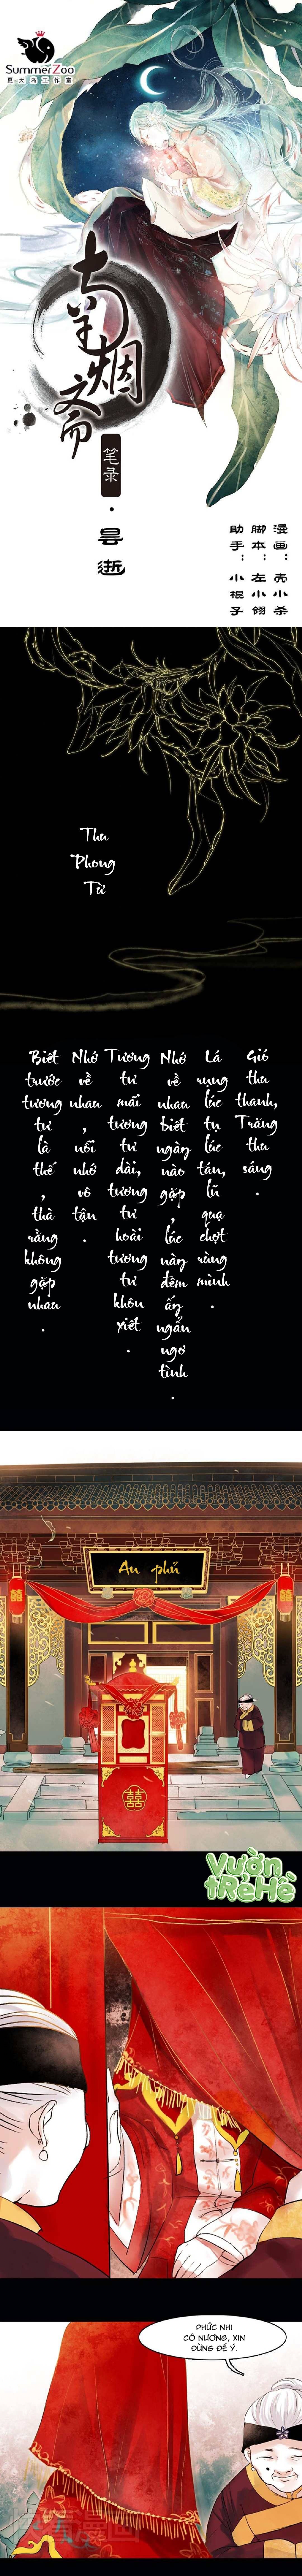 SummerZoo
夏天岛工作室
南烟斋
笔录
·
昙逝
漫画：壳小杀
脚本：左小翎
助手：小棍子
Thu
Phong
Từ
Gió
thu
thanh,
Trăng
thu
sáng
.
Lá
rụng
lúc
tụ
lúc
tán,
lũ
quạ
chợt
rùng
mình
.
Nhớ
về
nhau
biết
ngày
nào
gặp
,
lúc
này
đêm
ấy
ngẩn
ngơ
tình
.
Tương
tư
mãi
tương
tư
dài,
tương
tư
hoài
tương
tư
khôn
xiết
.
Nhớ
về
nhau
,
nỗi
nhớ
vô
tận
.
Biết
trước
tương
tư
là
thế
,
thà
rằng
không
gặp
nhau
.
An phủ
囍
VƯỜN
TRẺ HÈ
PHỨC NHI
CÔ NƯƠNG, XIN
ĐỪNG ĐỂ Ý.